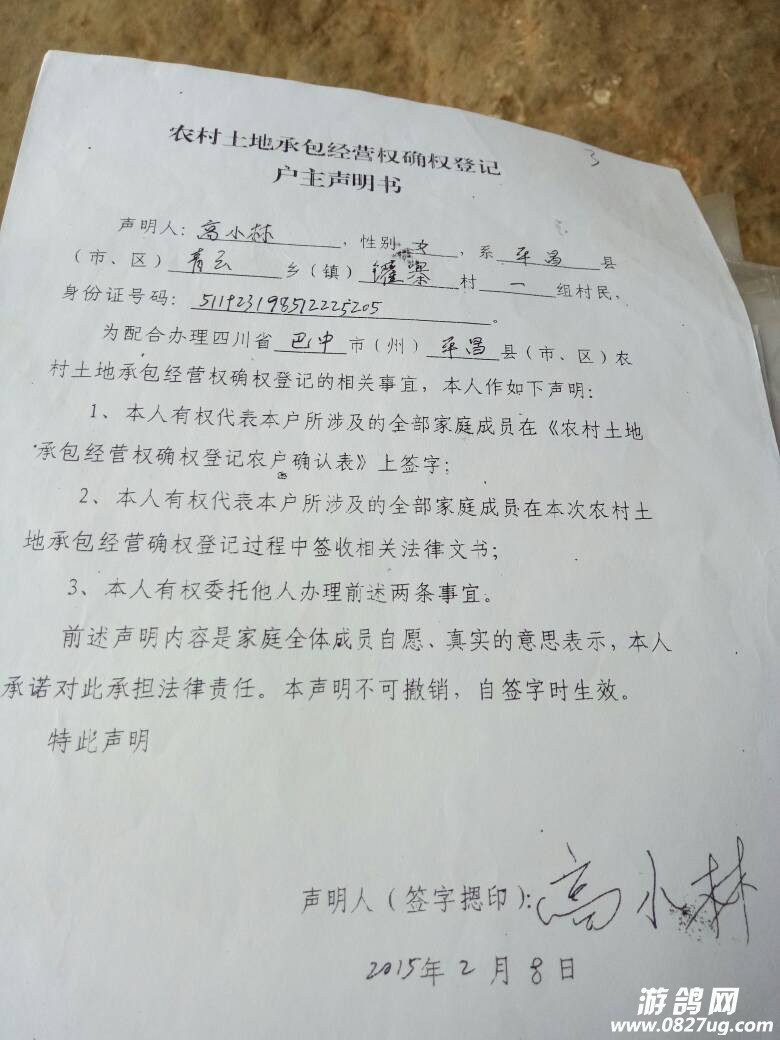 农村土地承包经营权确权登记
户主声明书
3
声明人：高小林，性别女，系平昌县
（市、区）青云乡（镇）寨村一组村民，
身份证号码：511923198512225205。
为配合办理四川省巴中市（州）平昌县（市、区）农
村土地承包经营权确权登记的相关事宜，本人作如下声明：
1、本人有权代表本户所涉及的全部家庭成员在《农村土地
承包经营权确权登记农户确认表》上签字；
2、本人有权代表本户所涉及的全部家庭成员在本次农村土
地承包经营确权登记过程中签收相关法律文书；
3、本人有权委托他人办理前述两条事宜。
前述声明内容是家庭全体成员自愿、真实的意思表示，本人
承诺对此承担法律责任。本声明不可撤销，自签字时生效。
特此声明
声明人（签字摁印）：高小林
2015年2月8日
游鸽网
www.0827ug.com